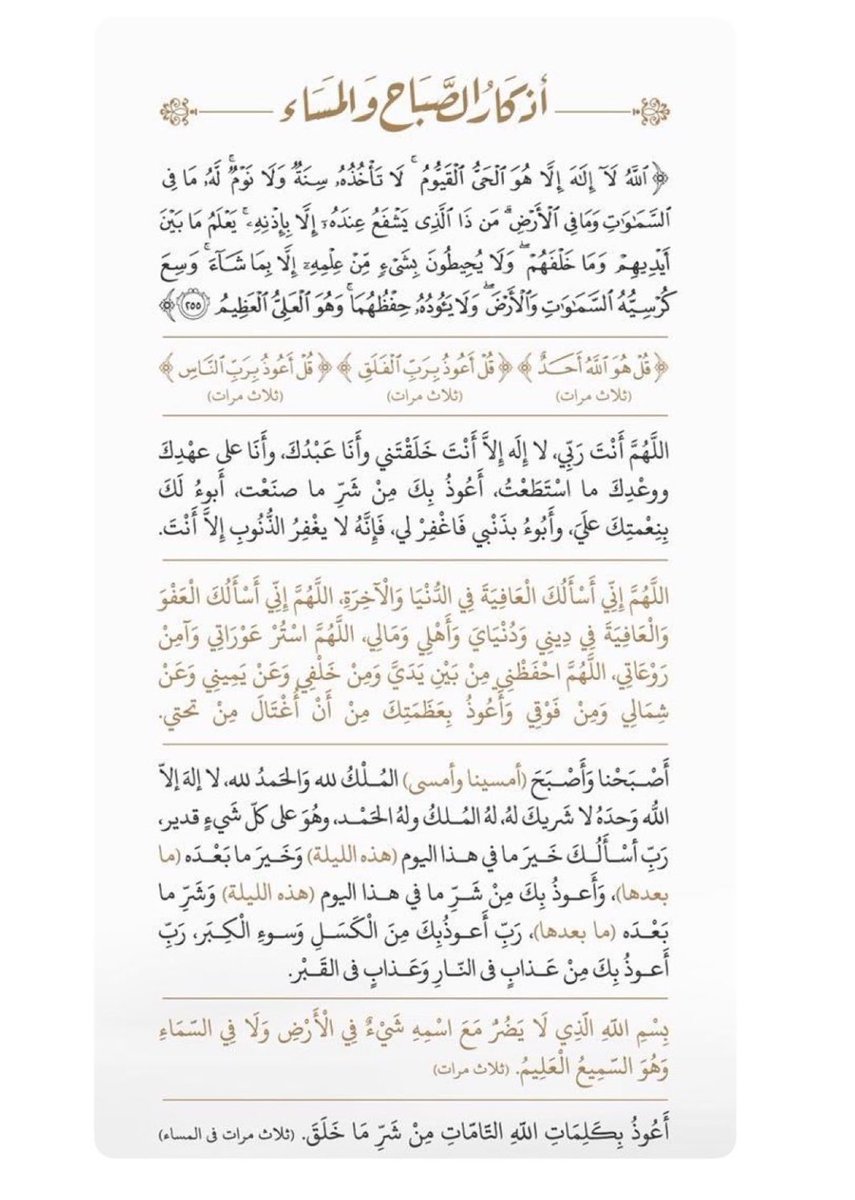 أذكار الصَّبَاح وَالمَسَاء
﴿ ٱللَّهُ لَآ إِلَٰهَ إِلَّا هُوَ ٱلْحَىُّ ٱلْقَيُّومُ ۚ لَا تَأْخُذُهُۥ سِنَةٌ وَلَا نَوْمٌ ۚ لَّهُۥ مَا فِى
ٱلسَّمَٰوَٰتِ وَمَا فِى ٱلْأَرْضِ ۗ مَن ذَا ٱلَّذِى يَشْفَعُ عِندَهُۥٓ إِلَّا بِإِذْنِهِۦ ۚ يَعْلَمُ مَا بَيْنَ
أَيْدِيهِمْ وَمَا خَلْفَهُمْ ۖ وَلَا يُحِيطُونَ بِشَىْءٍ مِّنْ عِلْمِهِۦٓ إِلَّا بِمَا شَآءَ ۚ وَسِعَ
كُرْسِيُّهُ ٱلسَّمَٰوَٰتِ وَٱلْأَرْضَ ۖ وَلَا يَـُٔودُهُۥ حِفْظُهُمَا ۚ وَهُوَ ٱلْعَلِىُّ ٱلْعَظِيمُ ٢٥٥ ﴾
﴿ قُلْ هُوَ ٱللَّهُ أَحَدٌ ﴾ ﴿ قُلْ أَعُوذُ بِرَبِّ ٱلْفَلَقِ ﴾ ﴿ قُلْ أَعُوذُ بِرَبِّ ٱلنَّاسِ ﴾
(ثلاث مرات) (ثلاث مرات) (ثلاث مرات)
اللَّهُمَّ أَنْتَ رَبِّي، لا إِلَه إِلاَّ أَنْتَ خَلَقْتَني وأَنَا عَبْدُكَ، وأَنَا على عهْدِكَ
ووعْدِكَ ما اسْتَطَعْتُ، أَعُوذُ بِكَ مِنْ شَرِّ ما صنَعْت، أَبوءُ لَكَ
بِنِعْمتِكَ علَيَ، وأَبُوءُ بذَنْبي فَاغْفِرْ لي، فَإِنَّهُ لا يغْفِرُ الذُّنُوبِ إِلاَّ أَنْتَ.
اللَّهُمَّ إِنِّي أَسْأَلُكَ الْعَافِيَةَ فِي الدُّنْيَا وَالْآخِرَةِ، اللَّهُمَّ إِنِّي أَسْأَلُكَ الْعَفْوَ
وَالْعَافِيَةَ فِي دِينِي وَدُنْيَايَ وَأَهْلِي وَمَالِي، اللَّهُمَّ اسْتُرْ عَوْرَاتِي وَآمِنْ
رَوْعَاتِي، اللَّهُمَّ احْفَظْنِي مِنْ بَيْنِ يَدَيَّ وَمِنْ خَلْفِي وَعَنْ يَمِينِي وَعَنْ
شِمَالِي وَمِنْ فَوْقِي وَأَعُوذُ بِعَظَمَتِكَ مِنْ أَنْ أُغْتَالَ مِنْ تحتي.
أَصْـبَحْنا وَأَصْـبَحَ (أمسينا وأمسى) المُـلْكُ لله وَالحَمدُ لله، لا إلهَ إلاّ
الله وَحدَهُ لا شَريكَ لهُ، لهُ المُـلكُ ولهُ الحَمْـد، وهُوَ على كلّ شَيءٍ قدير،
رَبِّ أسْـأَلُـكَ خَـيرَ ما في هـذا اليوم (هذه الليلة) وَخَـيرَ ما بَعْـدَه (ما
بعدها)، وَأَعـوذُ بِكَ مِنْ شَـرِّ ما في هـذا اليوم (هذه الليلة) وَشَرِّ ما
بَعْـدَه (ما بعدها)، رَبِّ أَعـوذُبِكَ مِنَ الْكَسَـلِ وَسـوءِ الْكِبَر، رَبِّ
أَعـوذُ بِكَ مِنْ عَـذابٍ فى النّارِ وَعَـذابٍ فى القَبْر.
بِسْمِ اللهِ الَّذِي لَا يَضُرُ مَعَ اسْمِهِ شَيْءٌ فِي الْأَرْضِ وَلَا فِي السّمَاءِ
وَهُوَ السّمِيعُ الْعَلِيمُ. (ثلاث مرات)
أَعُوذُ بِكَلِمَاتِ اللهِ التَامَّاتِ مِنْ شَرِّ مَا خَلَقَ. (ثلاث مرات فى المساء)